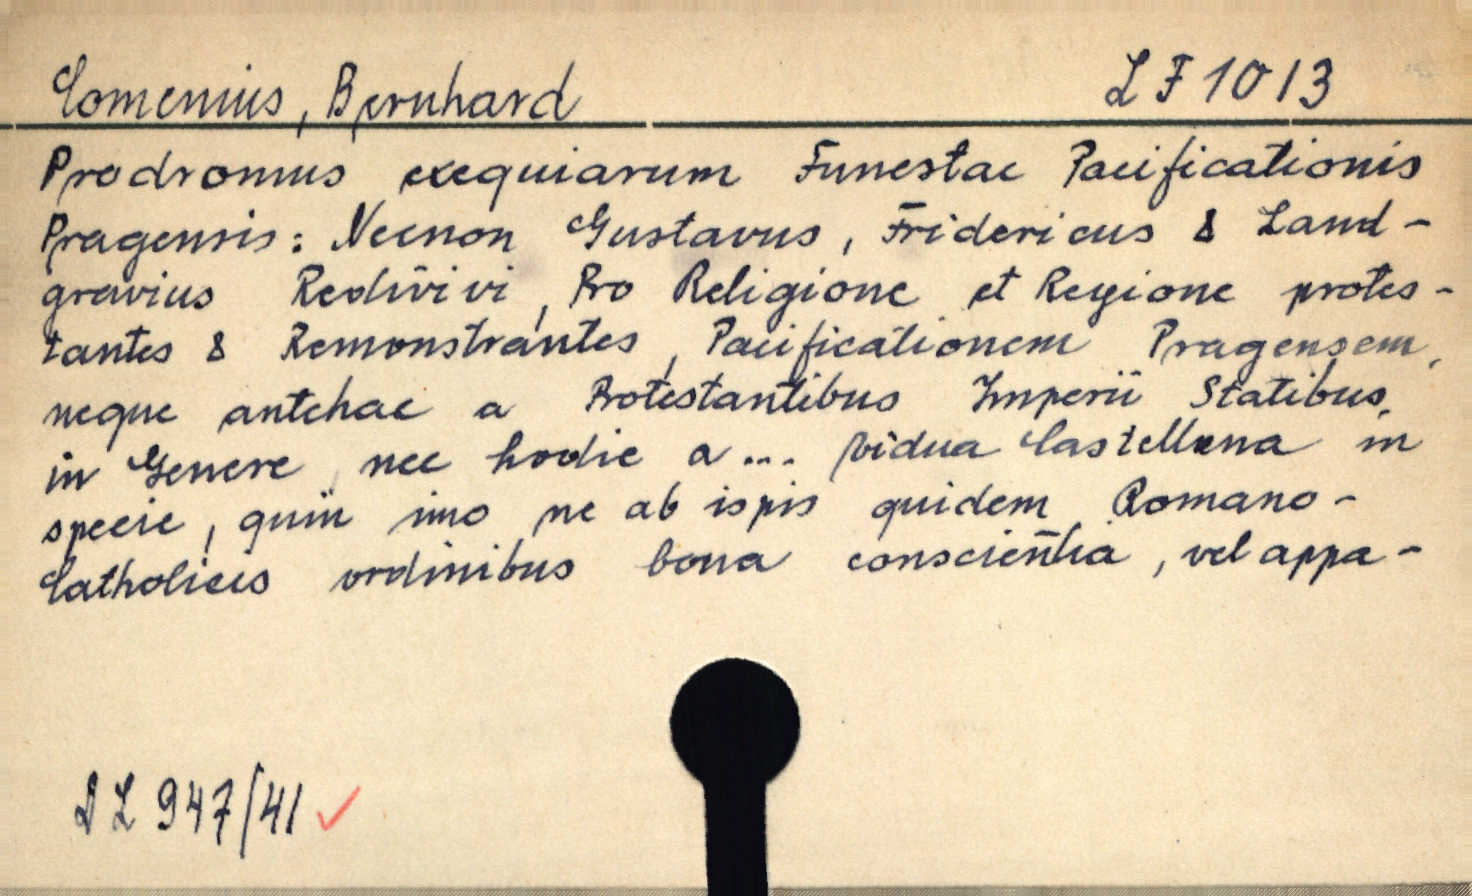 Comenius, Bernhard LF 1013
Prodromus exequiarum Funestae Pacificationis
Pragensis: Necnon Gustavus, Fridericus & Land-
gravius Redivivi, Pro Religione et Regione protes-
tantes & Remonstrantes, Pacificationem Pragensem,
neque antehac a Protestantibus Imperii Statibus,
in Genere, nec hodie a... vidua Castellana in
specie, quin imo ne ab ispis quidem Romano-
Catholicis ordinibus bona conscientia, vel appa-
DL 947/41 ✓